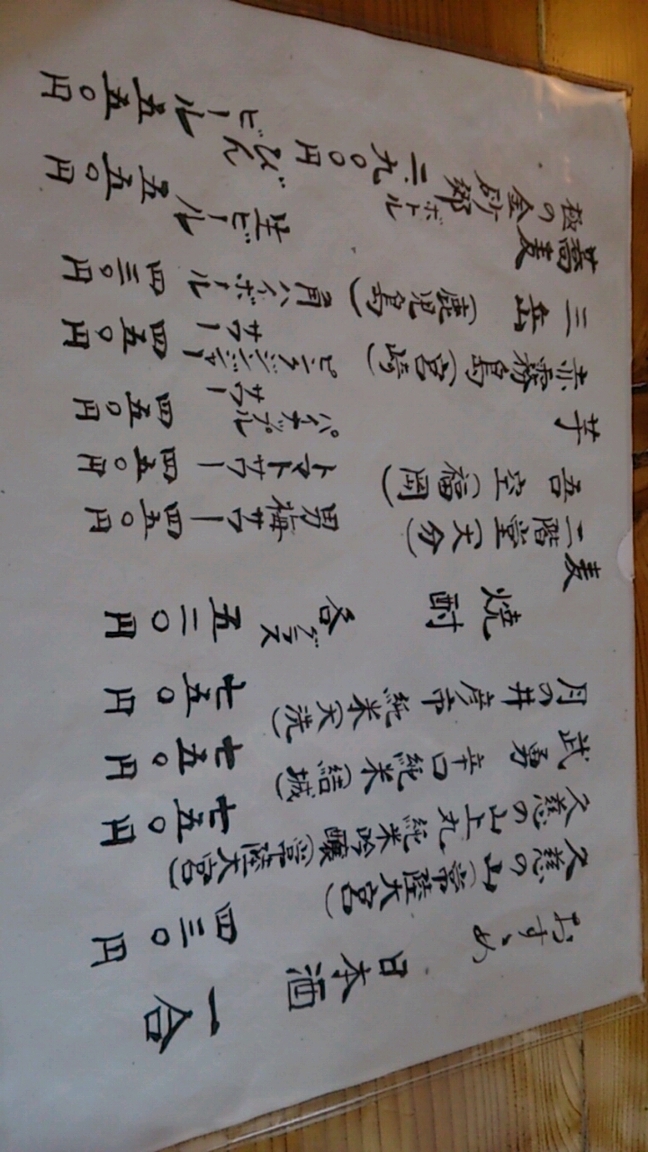 おすゝめ 日本酒 一合
久慈の山(常陸大宮) 四三〇円
久慈の山上丸 純米吟醸(常陸大宮) 七五〇円
武勇 辛口純米(結城) 七五〇円
月の井 彦市 純米(大洗) 七五〇円
焼酎 各グラス 五二〇円
麦
二階堂(大分)
吾空(福岡)
芋
赤霧島(宮崎)
三岳(鹿児島)
蕎麦
極の金砂郷 ボトル 二九〇〇円
男梅サワー 四五〇円
トマトサワー 四五〇円
パイナップルサワー 四五〇円
ピンクジンジャーサワー 四五〇円
角ハイボール 四三〇円
生ビール 五五〇円
びんビール 五五〇円